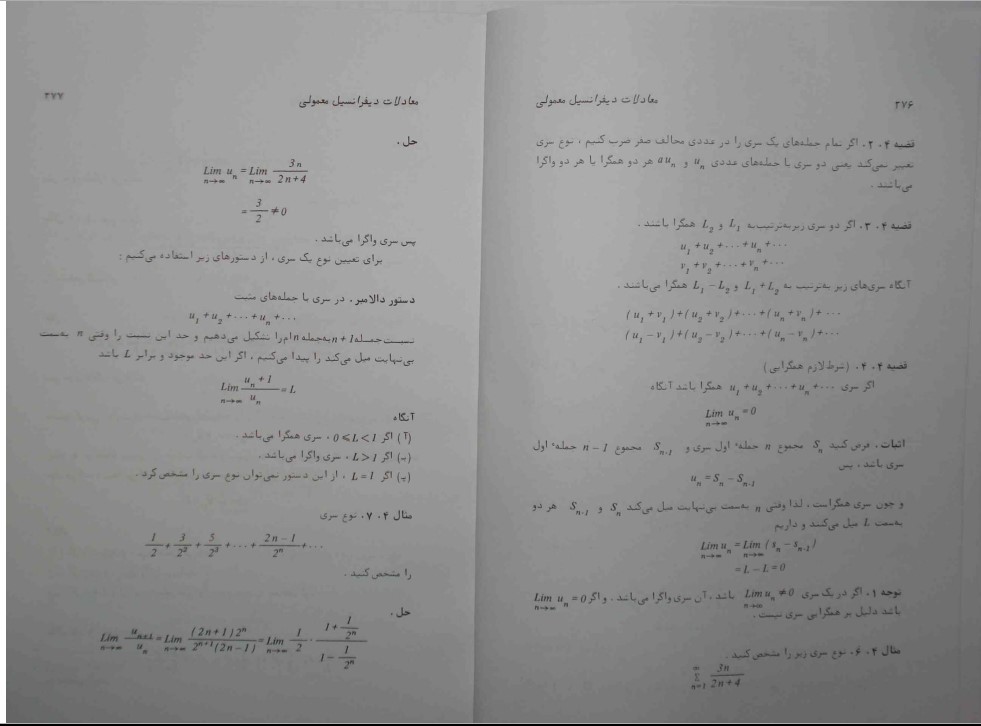 معادلات دیفرانسیل معمولی
۲۷۶
قضیه ۴.۲. اگر تمام جمله‌های یک سری را در عددی مخالف صفر ضرب کنیم ، نوع سری
تغییر نمی‌کند یعنی دو سری با جمله‌های عددی u_n و au_n هر دو همگرا یا هر دو واگرا
می‌باشند .
قضیه ۴.۳. اگر دو سری زیر به‌ترتیب به L_1 و L_2 همگرا باشند .
u_1 + u_2 + ··· + u_n + ···
v_1 + v_2 + ··· + v_n + ···
آنگاه سری‌های زیر به‌ترتیب به L_1 + L_2 و L_1 − L_2 همگرا می‌باشند .
(u_1 + v_1) + (u_2 + v_2) + ··· + (u_n + v_n) + ···
(u_1 − v_1) + (u_2 − v_2) + ··· + (u_n − v_n) + ···
قضیه ۴.۴. (شرط لازم همگرایی)
اگر سری u_1 + u_2 + ··· + u_n + ··· همگرا باشد آنگاه
Lim u_n = 0
n→∞
اثبات . فرض کنید S_n مجموع n جملهٔ اول سری و S_{n-1} مجموع n − 1 جملهٔ اول
سری باشد ، پس
u_n = S_n − S_{n-1}
و چون سری همگراست ، لذا وقتی n به‌سمت بی‌نهایت میل می‌کند S_n و S_{n-1} هر دو
به‌سمت L میل می‌کنند و داریم
Lim u_n = Lim (s_n − s_{n-1})
n→∞ n→∞
= L − L = 0
توجه ۱. اگر در یک سری Lim u_n ≠ 0 باشد ، آن سری واگرا می‌باشد . و اگر Lim u_n = 0
n→∞ n→∞
باشد دلیل بر همگرایی سری نیست .
مثال ۴.۶. نوع سری زیر را مشخص کنید .
∞ 3n
Σ
n=1 2n+4
معادلات دیفرانسیل معمولی
۲۷۷
حل .
Lim u_n = Lim 3n / 2n+4
n→∞ n→∞
= 3/2 ≠ 0
پس سری واگرا می‌باشد .
برای تعیین نوع یک سری ، از دستورهای زیر استفاده می‌کنیم :
دستور دالامبر . در سری با جمله‌های مثبت
u_1 + u_2 + ··· + u_n + ···
نسبت جمله n+1 به‌جمله n ام را تشکیل می‌دهیم و حد این نسبت را وقتی n به‌سمت
بی‌نهایت میل می‌کند را پیدا می‌کنیم ، اگر این حد موجود و برابر L باشد
Lim u_n+1 / u_n = L
n→∞
آنگاه
(آ) اگر 0 ⩽ L < 1 ، سری همگرا می‌باشد .
(ب) اگر L > 1 ، سری واگرا می‌باشد .
(پ) اگر L = 1 ، از این دستور نمی‌توان نوع سری را مشخص کرد .
مثال ۴.۷. نوع سری
1/2 + 3/2^2 + 5/2^3 + ··· + 2n−1/2^n + ···
را مشخص کنید .
حل .
Lim u_{n+1}/u_n = Lim (2n+1)2^n / 2^{n+1}(2n−1) = Lim 1/2 · (1 + 1/2n) / (1 − 1/2n)
n→∞ n→∞ n→∞